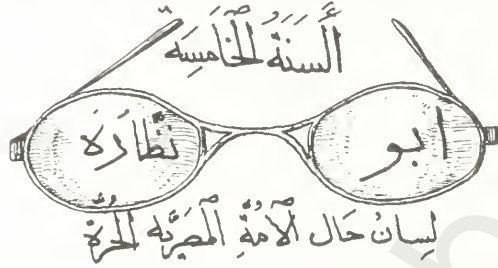 أَلسَنَةُ الخَامِسَه
ابو نظارَه
لِسانُ حَال الاُمةِ المَصرِيَّه الحُرة